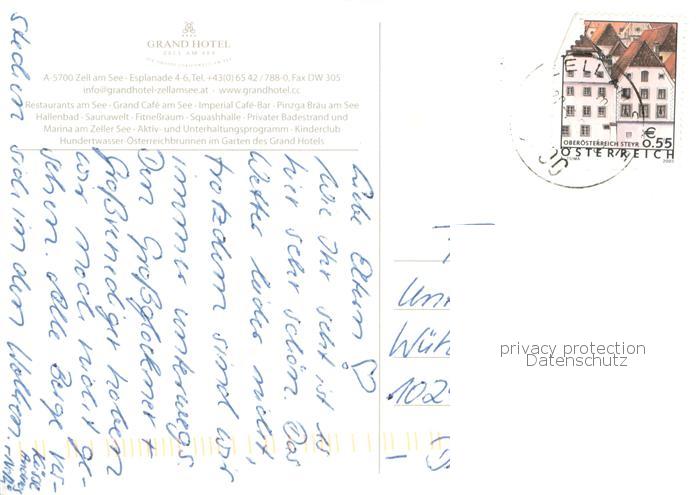 GRAND HOTEL
ZELL AM SEE
A-5700 Zell am See - Esplanade 4-6, Tel. +43(0) 65 42 / 788-0, Fax DW 305
info@grandhotel-zellamsee.at - www.grandhotel.cc
Restaurants am See - Grand Café am See - Imperial Café-Bar - Pinzga Bräu am See
Hallenbad - Saunawelt - Fitneßraum - Squashhalle - Privater Badestrand und
Marina am Zeller See - Aktiv- und Unterhaltungsprogramm - Kinderclub
Hundertwasser-Österreichbrunnen im Garten des Grand Hotels
Liebe Eltern ♡
Wie Ihr seht ist es
hier sehr schön. Das
Wetter leider nicht,
trotzdem sind wir
immer unterwegs.
Den Großglockner +
Großvenediger haben
wir noch nicht ge-
sehen. Alle Berge ver-
stecken sich in den Wolken.
Küsse
Un
Wüt
102
ZELL
€
0.55
OBERÖSTERREICH STEYR
ÖSTERREICH
privacy protection
Datenschutz